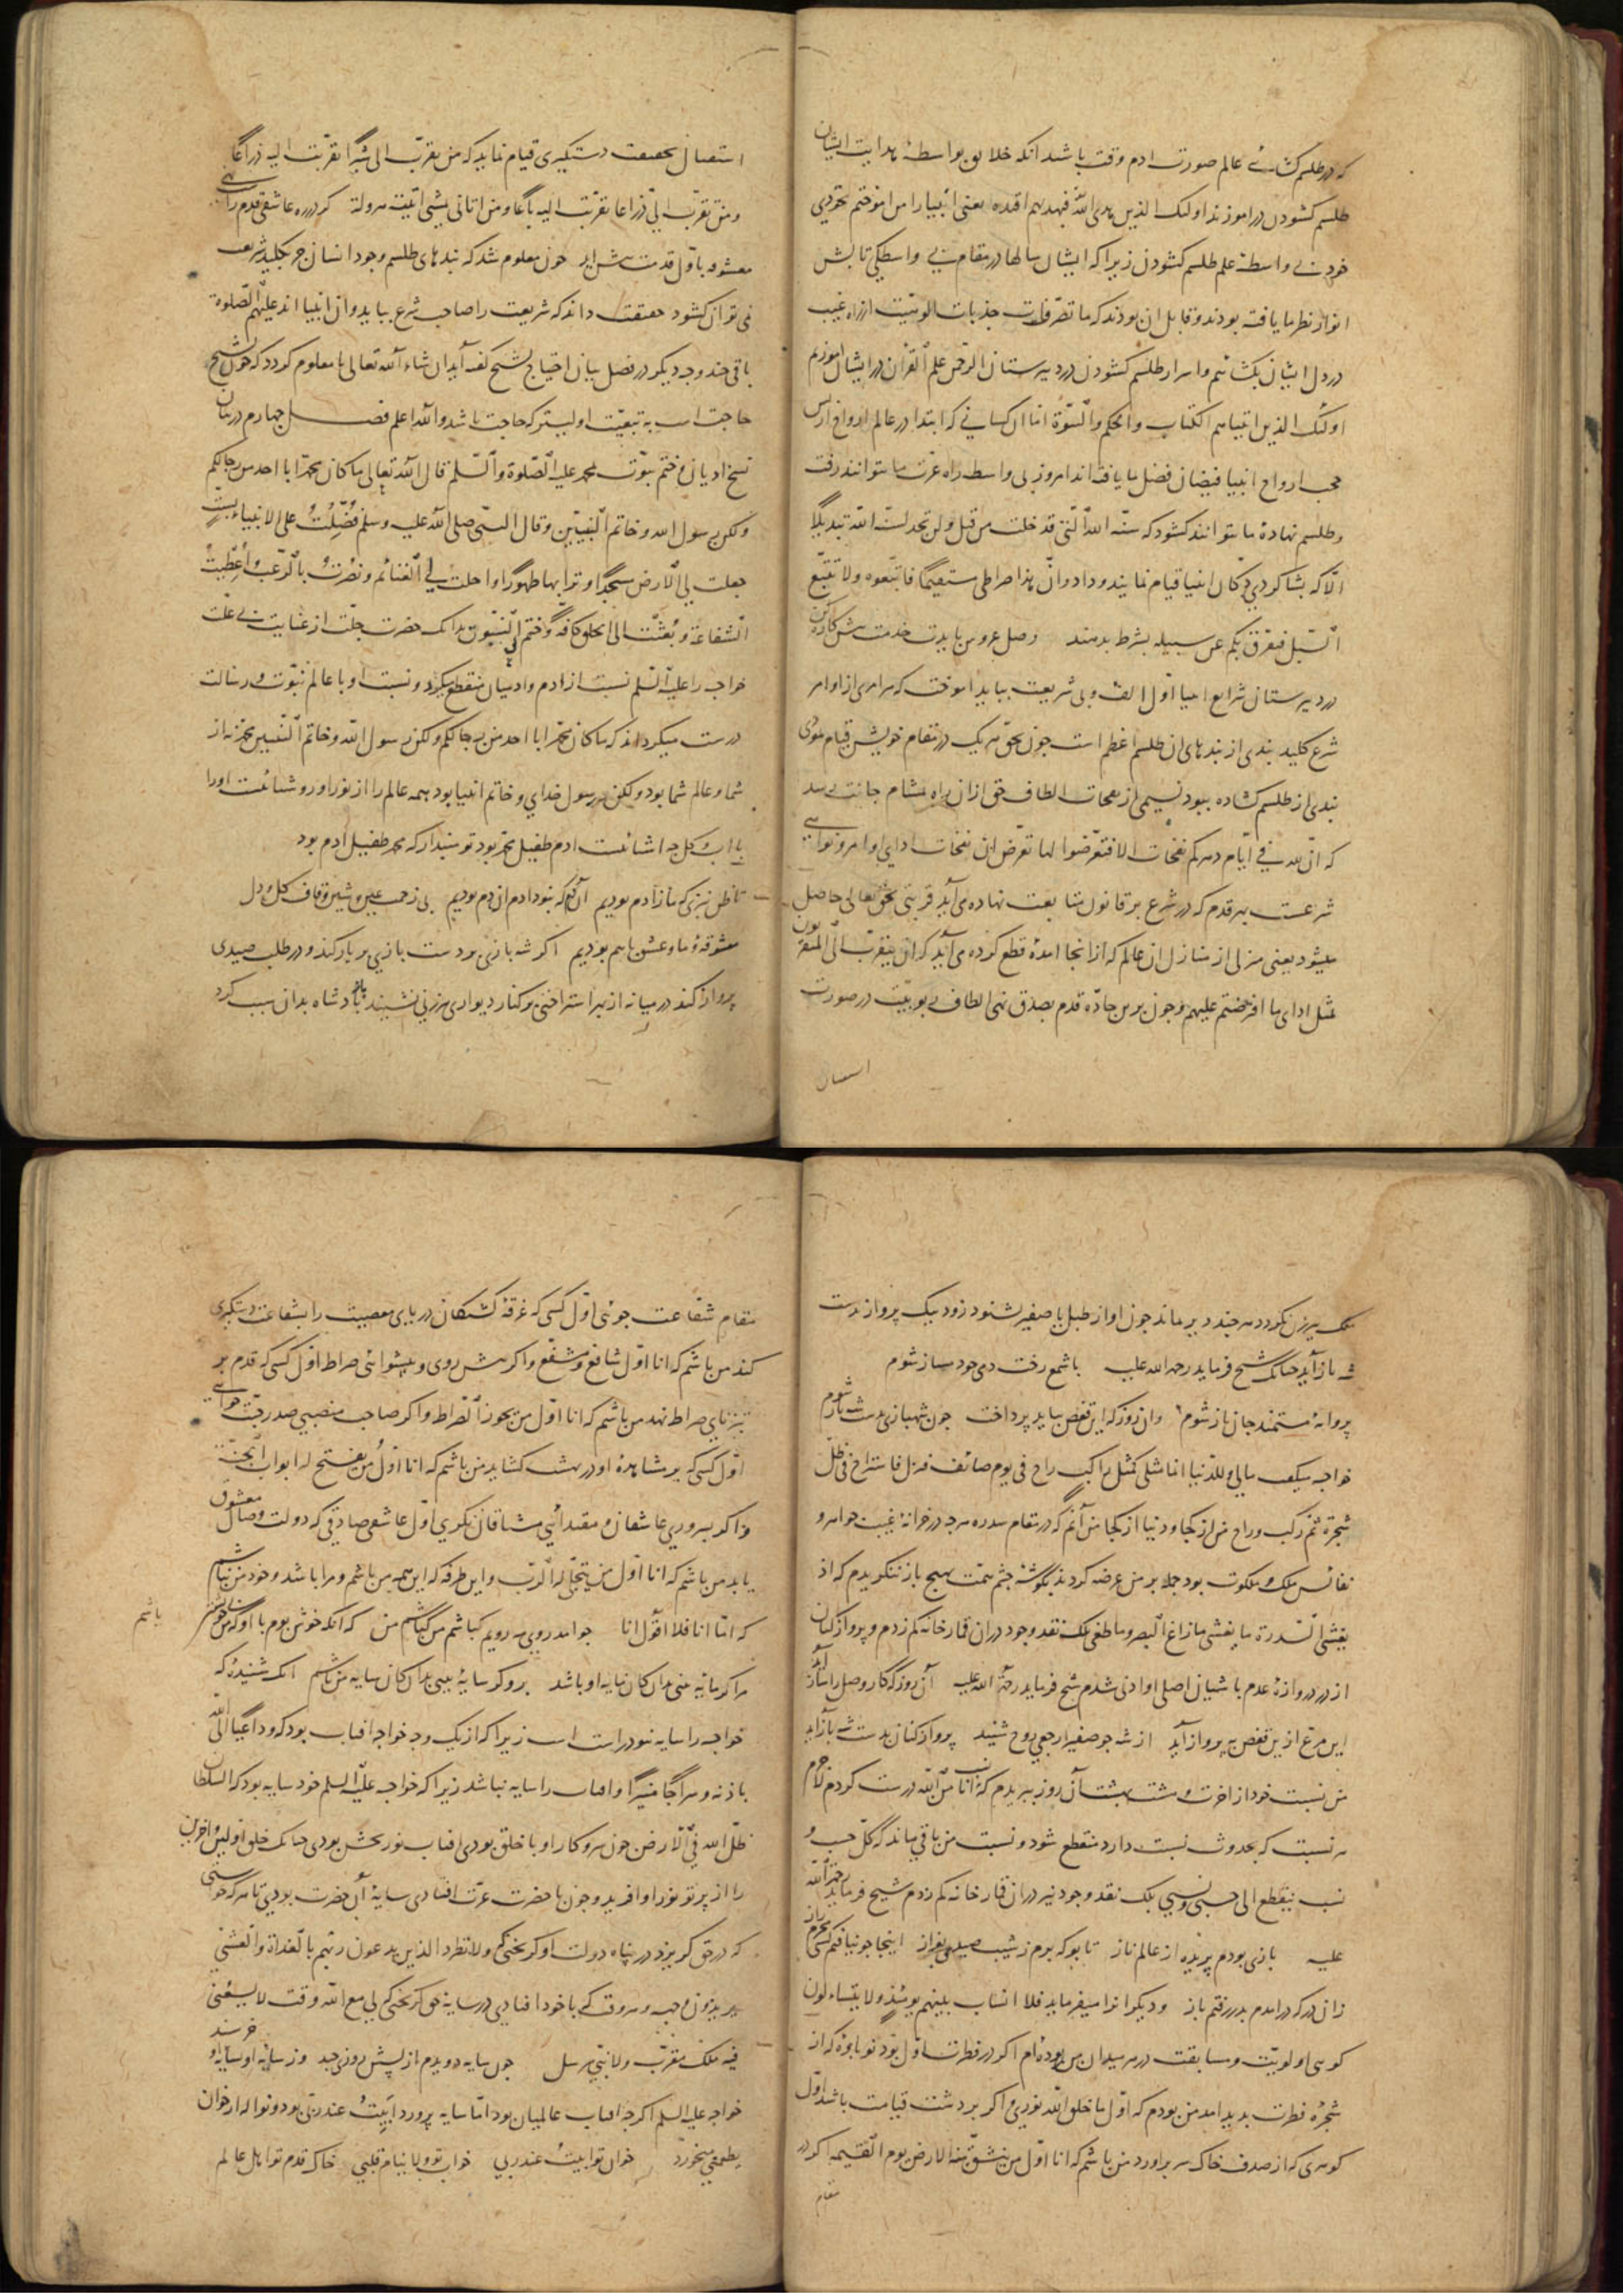 که در طلسم کشائے عالم صورت ادم وقت باشد انکه خلایق بواسطهٔ هدایت ایشان
طلسم کشودن در اموزند اولئک الذین هدی الله فبهدیهم اقتده یعنی انبیا را من اموختم بخودی
خود بے واسطه علم طلسم کشودن زیرا که ایشان سالها در مقام بے واسطکی تابش
انوار نظر ما یافته بودند و قابل ان بودند که ما تصرفات جذبات الوهیت از راه غیب
در دل ایشان بکشائیم و اسرار طلسم کشودن در دبیرستان الرحمن علم القرآن در ایشان اموزیم
اولئک الذین اتیناهم الکتاب والحکم والنبوة اما ان کسانی که ابتدا در عالم ارواح از پس
حجب ارواح انبیا فیضان فضل ما یافته اند امروز بی واسطه راه عزت ما نتوانند رفت
وطلسم نهادهٔ ما نتوانند کشود که سنة الله الّتی قد خلت من قبل ولن تجد لسنة الله تبدیلًا
الّا که بشاکردی دکان انبیا قیام نمایند و داد وانّ هذا صراطی مستقیمًا فاتبعوه ولا تتبع
السّبل فتفرّق بکم عن سبیله بشرط بدهند وصل عروس بایدت خدمت پیش کاره کن
در دبیرستان شرایع انبیا اوّل الف و بی شریعت بباید اموخت که هر امری از اوامر
شرع کلید بندی از بندهای ان طلسم اعظم است چون بحق هریک در مقام خویش قیام نمودی
بندی از طلسم کشاده ببود نسیمی از نفحات الطاف حق ازان راه بمشام جانت رسد
که انّ لله فی ایّام دهرکم نفحات الا فتعرّضوا لها تعرّض ان نفحات ادای اوامر و نواهی
شرعست بهر قدم که در شرع بر قانون متابعت نهاده می آید قربتی بحق تعالی حاصل
میشود یعنی منزلی از منازل ان عالم که از انجا امدهٔ قطع کرده می آید که لن یتقرب الیّ المتقربون
بمثل ادای ما افترضتم علیهم و چون برین جادّه قدم بصدق نهی الطاف ربوبیّت در صورت
استقبال
استقبال بحقیقت دستکیری قیام نماید که من تقرّب الی شبرًا تقربت الیه ذراعًا
ومن تقرب الیّ ذراعا تقرّبت الیه باعًا ومن اتانی بمشی اتیته هرولة کر در ره عاشقی قدم راست نهی
معشوقه باوّل قدمت پیش اید چون معلوم شد که بندهای طلسم وجود انسان جز بکلید شریعت
نمی توان کشود حقیقت داند که شریعت را صاحب شرع بباید وان انبیا اند علیهم الصّلوة
باقی چند وجه دیکر در فصل بیان احتیاج بشیخ کفته آید ان شاء الله تعالی تا معلوم کردد که چون بشیخ
حاجت است به تبعیّت اولیتر که حاجت باشد والله اعلم فصل چهارم در بیان
نسخ ادیان وختم نبوّت محمد علیه الصّلوة والسّلم قال الله تعالی ما کان محمّد ابا احد من رجالکم
ولکن رسول الله وخاتم النّبیّین وقال النبیّ صلی الله علیه وسلم فُضّلتُ علی الانبیاء بستٍّ
جعلت لی الارض مسجدًا وترابها طهورًا واحلت لی الغنائم ونصرت بالرّعب واُعطیتُ
الشفاعة وبُعثتُ الی الخلق کافّةً وختم بی النبیّون بدانک حضرت جلّت از عنایت بے علّت
خواجه را علیه السلم نسبت از ادم وادمیان منقطع میکرد ونسبت او با عالم نبوّت ورسالت
درست میکرد اند که ما کان محمّد ابا احد من رجالکم ولکن رسول الله وخاتم النّبیین محمّد نه از
شما وعالم شما بود ولکن رسول خدای وخاتم انبیا بود همه عالم را از نور او روشنائست او را
با اب و کل چه اشنائست ادم طفیل محمّد بود تو مپندار که محمد طفیل ادم بود
تا ظن نبری که ما ز آدم بودیم آن دم که نبود ادم ان دم بودیم بی زحمت عین و شین و قاف کل و دل
معشوقه و ما و عشق باهم بودیم اکر شه بازی بر دست بازی پر باز کند و در طلب صیدی
پرواز کند در میانه از بهر استراحتی بر کنار دیواری پیرزنی نشیند باز پادشاه بدان سبب کرد
ملک پیرزن نکردد هر چند دیر ماند چون اواز طبل یا صفیر بشنود زود بیک پرواز بدست
شه باز آید چنانک شیخ فرماید رحمه الله علیه با شمع رخت دمی چو دمساز شوم
پروانهٔ مستمند جان باز شوم وان روز که این قفص بباید پرداخت چون شهبازی بدست شه باز شوم
خواجه میکفت مالی وللدّنیا انما مثلی کمثل راکب راح فی یوم صائف فنزل فاستراح فی ظلّ
شجرة ثمّ رکب وراح من از کجا و دنیا از کجا من آنم که در مقام سدره هرچه در خزانهٔ غیب جواهر و
نفائس ملک و ملکوت بود جمله بر من عرضه کردند بکوشهٔ چشم همّت بهیچ باز ننکریدم که اذ
یغشی السّدرة ما یغشی ما زاغ البصر وما طغی بلک نقد وجود دران قمارخانه کم زدم و پرواز کنان
از در دروازهٔ عدم باشیان اصلی او ادنی شدم شیخ فرماید رحمة الله علیه آن روز که کار وصل را ساز آید
این مرغ ازین قفص بپرواز آید از شه چو صفیر ارجعی روح شنید پرواز کنان بدست شه باز آید
من نسبت خود از اخرت و هشت بهشت آن روز ببریدم که نسبت انا من الله درست کردم لاجرم
هر نسبت که بحدوث نسبت دارد منقطع شود ونسبت من باقی ماند که کلّ حسب و
نسب ینقطع الی حسبی ونسبی بلک نقد وجود نیز دران قمارخانه کم زدم شیخ فرماید رحمة الله
علیه بازی بودم پریده از عالم ناز تا بو که برم ز شیب صیدی بفراز اینجا چو نیافتم کسی محرم راز
زان در که در امدم بدر رفتم باز و دیکرانرا میفرماید فلا انساب بینهم یومئذ ولا یتساءلون
کوی اولویّت و مسابقت در هر میدان من ربوده ام اکر در فطرت اوّل بود نوباوهٔ که از
شجرهٔ فطرت پدید امد من بودم که اوّل ما خلق الله نوری و اکر بر دشت قیامت باشد اوّل
کوهری که از صدف خاک سر براورد من باشم که انا اوّل من ینشقّ عنه الارض یوم القیمه اکر در
مقام
مقام شفاعت جوئی اوّل کسی که غرقه کشتکان دریای معصیت را بشفاعت دستکیری
کند من باشم که انا اوّل شافع ومشفّع واکر پیش روی و پیشوائی صراط اوّل کسی که قدم بر
تیزنای صراط نهد من باشم که انا اوّل من یجوز الصّراط واکر صاحب منصبی صدر جنّت خواهی
اوّل کسی که بر مشاهدهٔ او در بهشت کشاید من باشم که انا اوّلُ من یفتح له ابواب الجنّة
واکر بسروری عاشقان و مقتدائی مشتاقان نکری اوّل عاشقی صادق که دولت وصال معشوق
یابد من باشم که انا اوّل من یتجلّی له الرّب واین طرفه که این همه من باشم ومرا با شد وخود من نباشم
که امّا انا فلا اقول انا چو امد روی مه رویم که باشم من که باشم من که انکه خوش بوم با او که من بی خویشتن باشم
مرا کر مایه منی بدان کان مایه او باشد بر و کر سایهٔ بینی بدان کان سایه من باشم انک شنیدهٔ که
خواجه را سایه نبود راست است زیرا که از یک وجه خواجه افتاب بود که وداعیًا الی الله
باذنه وسراجًا منیرًا وافتاب را سایه نباشد زیرا که خواجه علیه السلم خود سایه بود که السلطان
ظلّ الله فی الارض چون سروکار او با خلق بودی افتاب نوربخش بودی چنانک خلق اولین واخرین
را از پرتو نور او افرید وچون با حضرت عزّت افتادی سایهٔ آن حضرت بودی تا هر که خواستی
که در حق کریزد در پناه دولت او کریختی که ولا تطرد الذین یدعون ربّهم بالغداة والعشی
یریدون وجهه وهر وقت که با خود افتادی در سایه حق کریختی که لی مع الله وقت لا یسعُنی
فیه ملک مقرّب ولا نبیّ مرسل چون سایه دویدم از پیش روزی چند وز سایهٔ او سایهٔ او خرسند
خواجه علیه السلم اکرچه افتاب عالمیان بود امّا سایه پرورد ابَیتُ عند ربّی بود ونواله از خوان
یطعمنی میخورد خوان تو ابیتُ عند ربی خواب تو ولا ینام قلبی خاک قدم تو اهل عالم